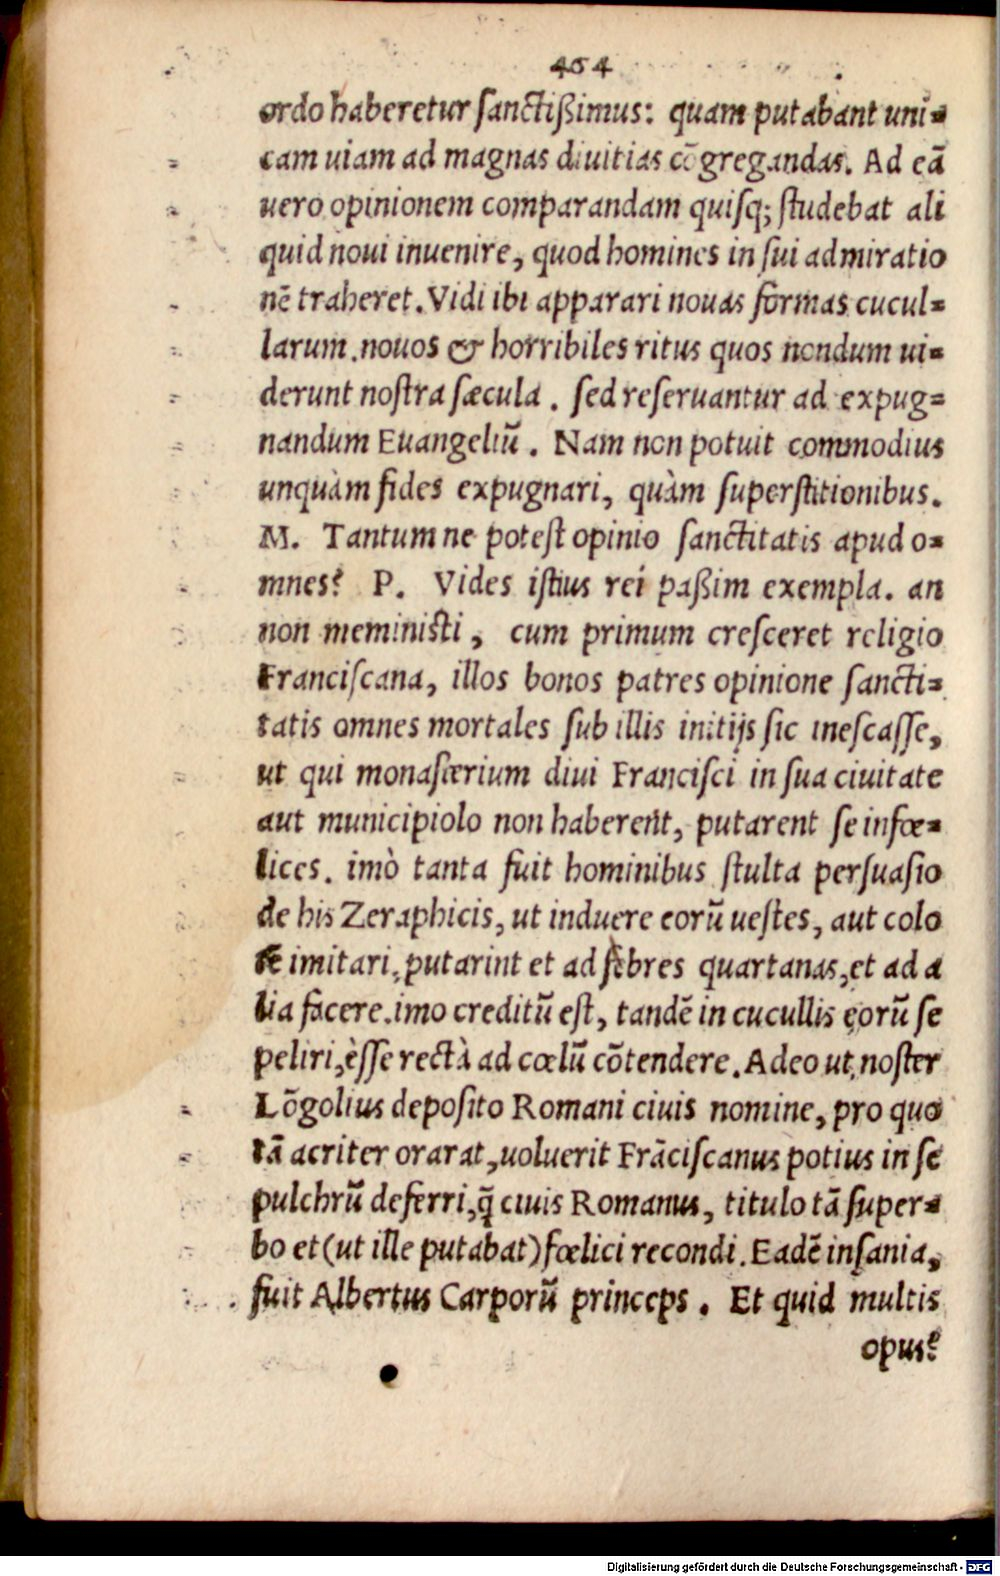 454
ordo haberetur ſanctiſsimus: quam putabant uni=
cam uiam ad magnas diuitias cōgregandas. Ad eā
uero opinionem comparandam quiſq; ſtudebat ali
quid noui inuenire, quod homines in ſui admiratio
nē traheret. Vidi ibi apparari nouas formas cucul=
larum. nouos & horribiles ritus quos nondum ui=
derunt noſtra ſæcula. ſed reſeruantur ad expug=
nandum Euangeliū. Nam non potuit commodius
unquàm fides expugnari, quàm ſuperſtitionibus.
M. Tantum ne poteſt opinio ſanctitatis apud o=
mnes? P. Vides iſtius rei paßim exempla. an
non meminiſti, cum primum creſceret religio
Franciſcana, illos bonos patres opinione ſancti=
tatis omnes mortales ſub illis initijs ſic ineſcaſſe,
ut qui monaſterium diui Franciſci in ſua ciuitate
aut municipiolo non haberent, putarent ſe infœ=
lices. imò tanta fuit hominibus ſtulta perſuaſio
de his Zeraphicis, ut induere eorū ueſtes, aut colo
re imitari, putarint et ad febres quartanas, et ad a
lia facere. imo creditū eſt, tandē in cucullis eorū ſe
peliri, eſſe rectà ad cœlū cōtendere. Adeo ut noſter
Lōgolius depoſito Romani ciuis nomine, pro quo
tā acriter orarat, uoluerit Frāciſcanus potius in ſe
pulchrū deferri, q̄ ciuis Romanus, titulo tā ſuper=
bo et (ut ille putabat) fœlici recondi. Eadē inſania,
fuit Albertus Carporū princeps. Et quid multis
opus?
Digitalisierung gefördert durch die Deutsche Forschungsgemeinschaft - DFG